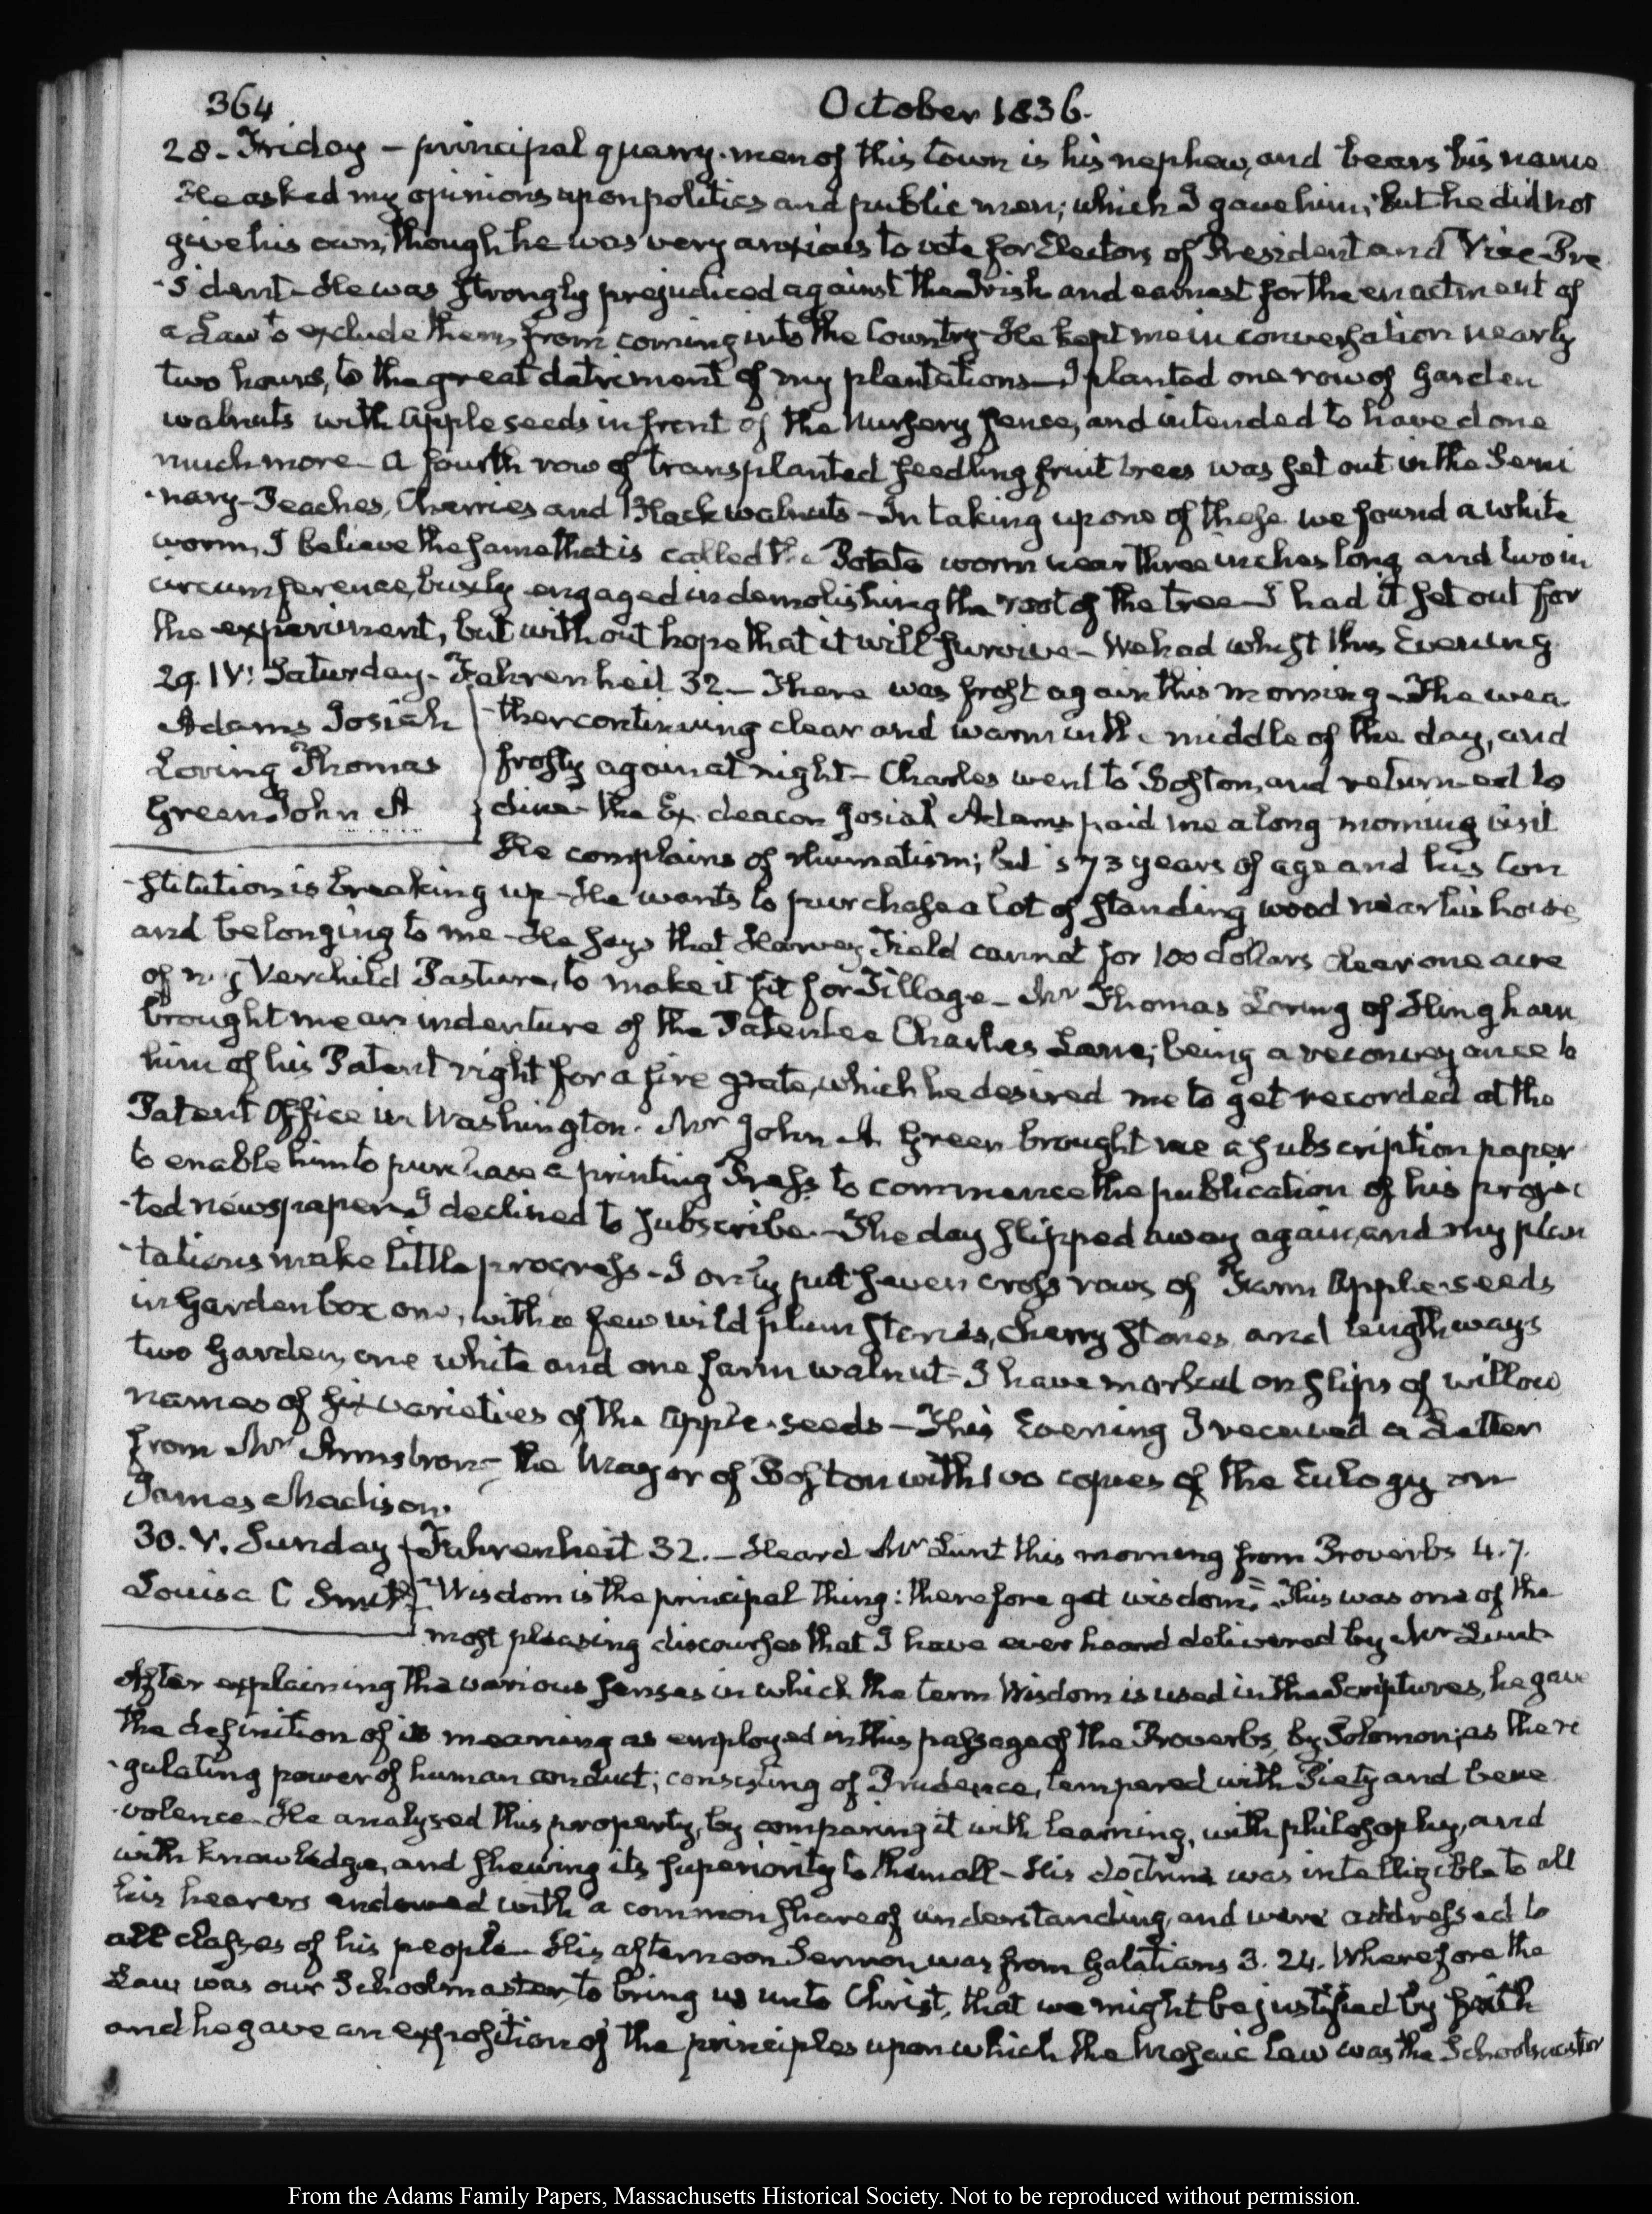 364
October 1836.
28. Friday – principal quarry-men of this town is his nephew, and bears his name
He asked my opinions upon politics and public men; which I gave him; but he did not
give his own, though he was very anxious to vote for Electors of President and Vice-Pre
-sident – He was strongly prejudiced against the Irish and earnest for the enactment of
a Law to exclude them from coming into the Country – He kept me in conversation nearly
two hours, to the great detriment of my plantations – I planted one row of Garden
walnuts with apple seeds in front of the Nursery fence, and intended to have done
much more – A fourth row of transplanted seedling fruit trees was set out in the Semi
-nary – Peaches, Cherries and Black walnuts – In taking up one of these we found a white
worm, I believe the same that is called the Potato worm near three inches long and two in
circumference, busily engaged in demolishing the root of the tree – I had it set out for
the experiment, but without hope that it will survive – We had whist this Evening.
29. IV: Saturday – Fahrenheit 32 – There was frost again this morning – The wea-
Adams Josiah
Loring Thomas
Green John A
-ther continuing clear and warm in the middle of the day, and
frosty again at night – Charles went to Boston, and returned to
dine – the Ex-deacon Josiah Adams paid me a long morning visit
He complains of rhumatism; but is 73 years of age and his Con
-stitution is breaking up – He wants to purchase a lot of standing wood near his house
and belonging to me – He says that Harvey Field cannot for 100 dollars clear one acre
of my Verchild Pasture, to make it fit for Tillage – Mr Thomas Loring of Hingham
brought me an indenture of the Patentee Charles Lane; being a reconveyance to
him of his Patent right for a fire grate, which he desired me to get recorded at the
Patent Office in Washington. Mr John A. Green brought me a subscription paper
to enable him to purchase a printing Press to commence the publication of his projec
-ted newspaper – I declined to subscribe. – The day slipped away again, and my plan
-tations make little progress – I only put seven cross rows of Farm Apple-seeds
in Garden box one, with a few wild plum stones, cherry stones, and lengthways
two Garden, one white and one farm walnut – I have marked on slips of willow
names of six varieties of the apple-seeds – This Evening I received a Letter
from Mr Armstrong the Mayor of Boston with two copies of the Eulogy on
James Madison.
30. V. Sunday
Louisa C Smith
Fahrenheit 32. – Heard Mr Lunt this morning from Proverbs 4.7.
"Wisdom is the principal thing: therefore get wisdom." This was one of the
most pleasing discourses that I have ever heard delivered by Mr Lunt
After explaining the various senses in which the term Wisdom is used in the Scriptures, he gave
the definition of its meaning as employed in this passage of the Proverbs, by Solomon; as the re
-gulating power of human conduct; consisting of Prudence, tempered with Piety and bene
-volence – He analysed this property, by comparing it with learning, with philosophy, and
with knowledge, and shewing its superiority to them all – His doctrine was intelligible to all
his hearers endowed with a common share of understanding, and were addressed to
all classes of his people – His afternoon Sermon was from Galatians 3. 24. Wherefore the
Law was our Schoolmaster, to bring us unto Christ, that we might be justified by faith
and he gave an exposition of the principles upon which the Mosaic Law was the Schoolmaster
From the Adams Family Papers, Massachusetts Historical Society. Not to be reproduced without permission.